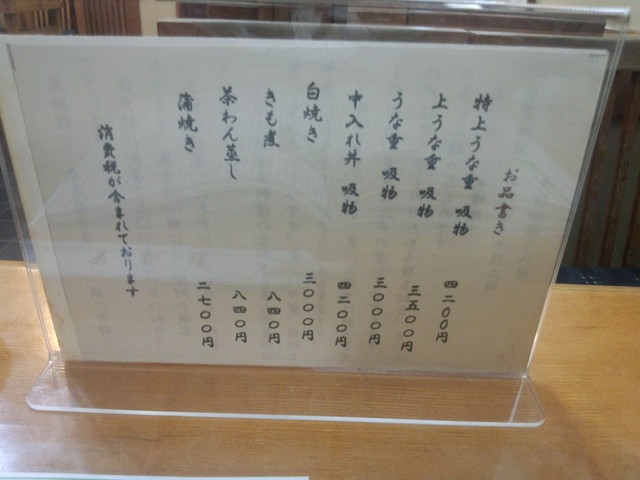 お品書き
特上うな重 吸物 四二〇〇円
上うな重 吸物 三五〇〇円
うな重 吸物 三〇〇〇円
中入れ丼 吸物 四二〇〇円
白焼き 三〇〇〇円
きも煮 八四〇円
茶わん蒸し 八四〇円
蒲焼き 二七〇〇円
消費税が含まれております